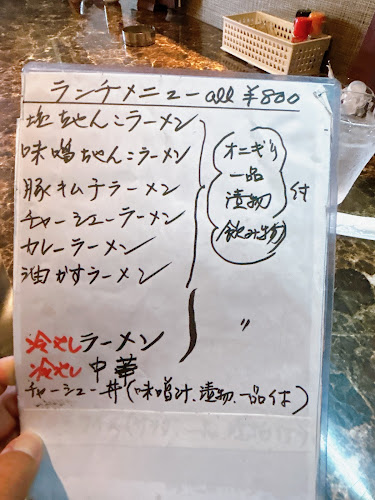 ランチメニュー all ¥800
塩ちゃんこラーメン
味噌ちゃんこラーメン
豚キムチラーメン
チャーシューラーメン
カレーラーメン
油かすラーメン
オニギリ
一品
漬物
飲み物
付
冷やしラーメン
冷やし中華
〃
チャーシュー丼(味噌汁、漬物、一品付)